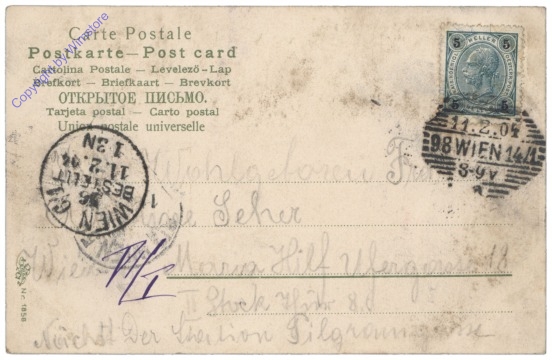 Carte Postale
Postkarte — Post card
Cartolina Postale — Levelező-Lap
Brefkort — Briefkaart — Brevkort
ОТКРЫТОЕ ПИСЬМО.
Tarjeta postal — Carto postal
Union postale universelle
Copyright by Winstore
5 HELLER 5
5 5
11.2.04
98 WIEN 14/1
8-9V
WIEN
BESTELLT
11.2.04
1
Wohlgeboren
Seher
Wien Maria Hilf 18
II Stock Thür 8
Nächst Der Station Pilgramgasse
V/1
No 1858